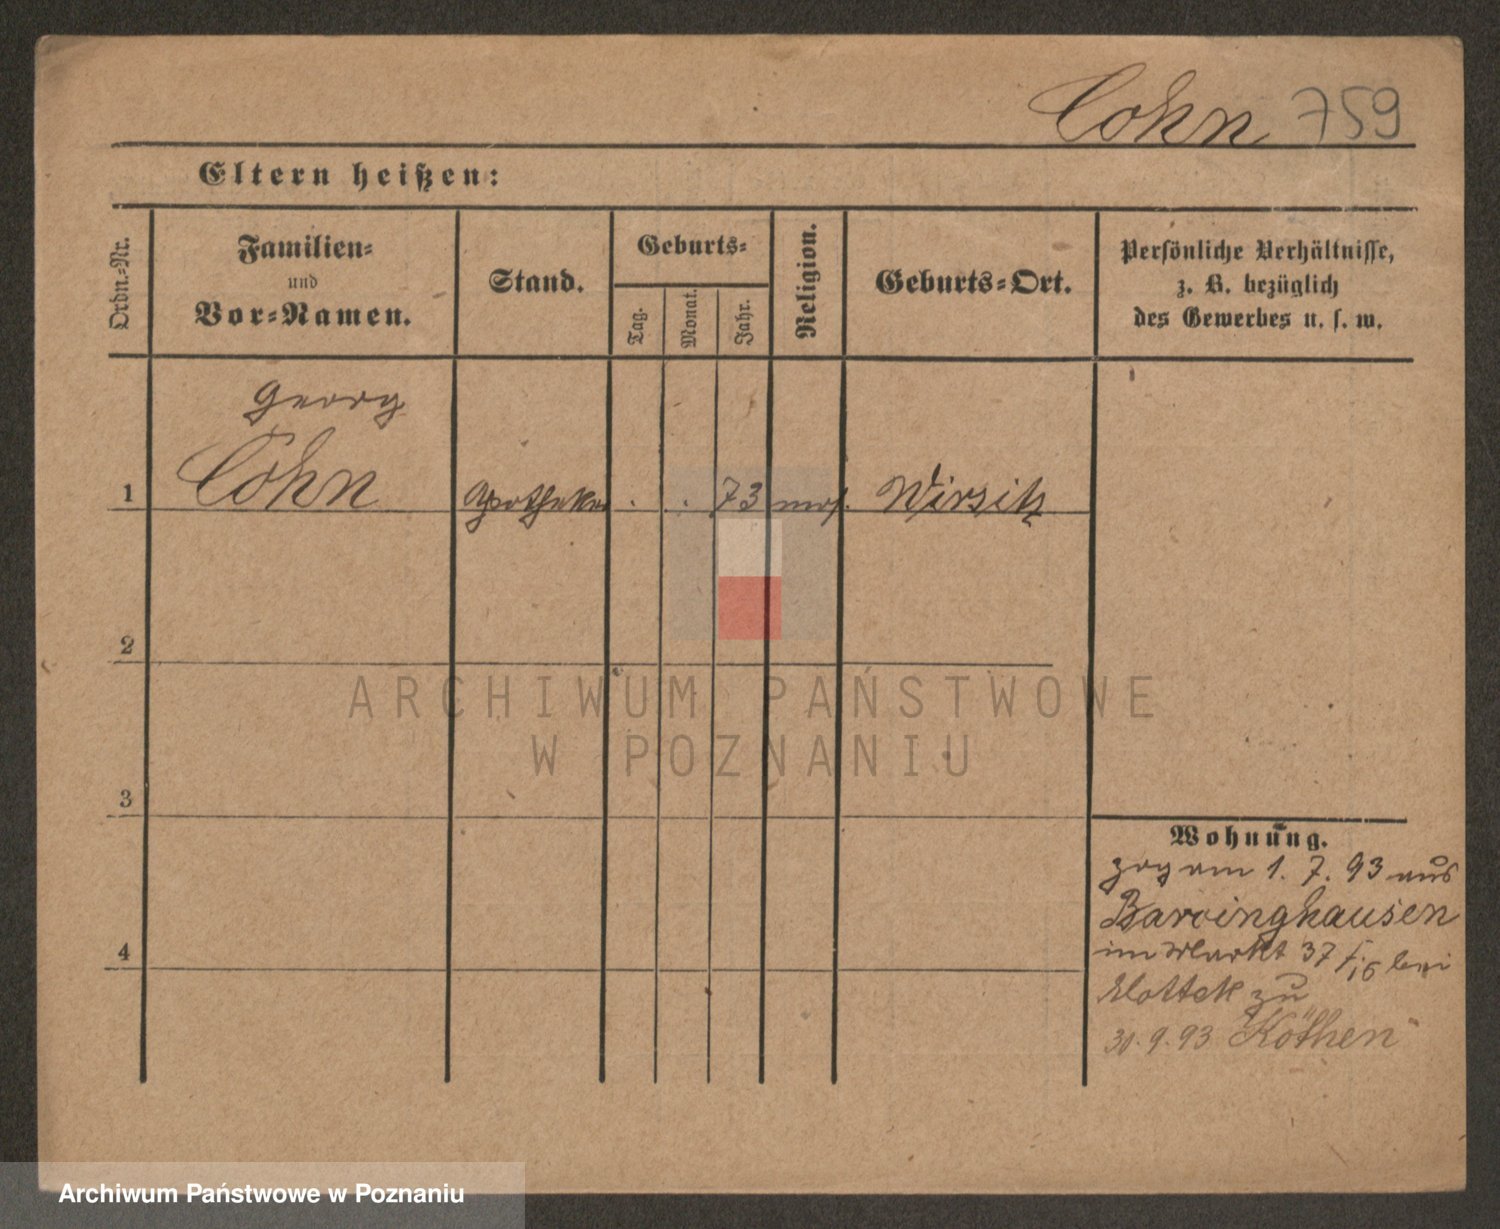 Cohn 759
Eltern heißen:
Ordn.=Nr.
Familien=
und
Vor=Namen.
Stand.
Geburts=
Tag.
Monat.
Jahr.
Religion.
Geburts=Ort.
Persönliche Verhältnisse,
z. B. bezüglich
des Gewerbes u. s. w.
Georg
1 Cohn Apotheker . . 73 mos. Wirsitz
2
ARCHIWUM PAŃSTWOWE
W POZNANIU
3
4
Wohnung.
zog am 1. 7. 93 aus
Barsinghausen
im Markt 37 bei
zu
30. 9. 93 Köthen
Archiwum Państwowe w Poznaniu